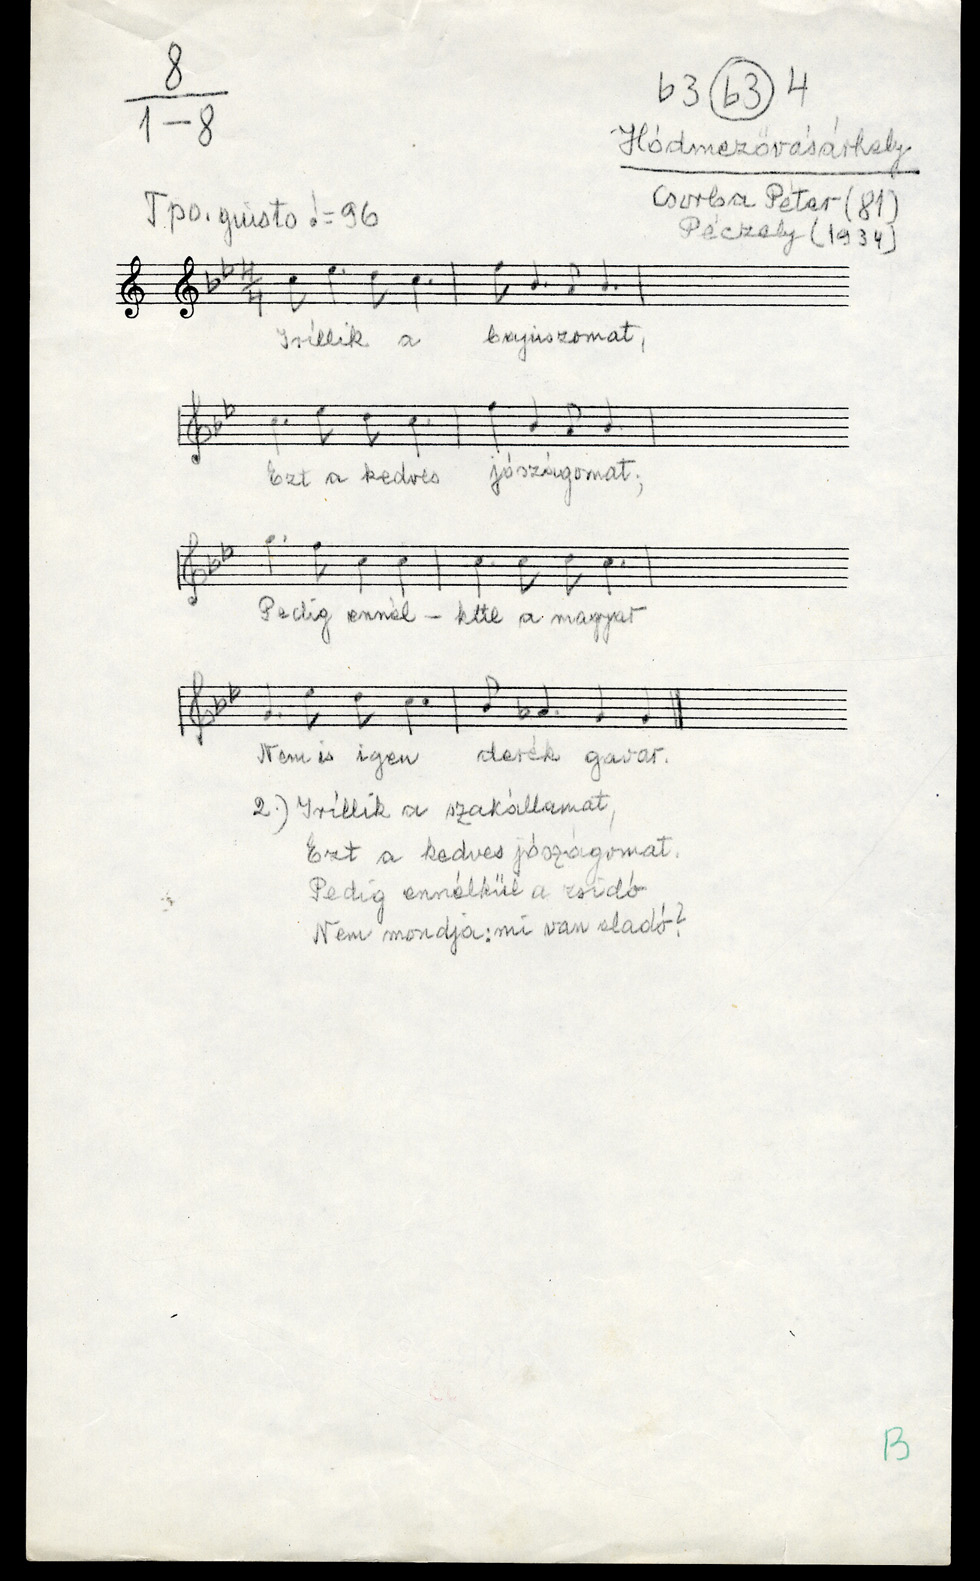 8
1-8
b3 b3 4
Hódmezővásárhely
Csorba Péter (81)
Péczely (1934)
Tpo. guisto ♩=96
Irillik a bajuszomat,
Ezt a kedves jószágomat;
Pedig ennél-kül a magyar
Nem is igen derék gavar.
2.) Irillik a szakállamat,
Ezt a kedves jószágomat.
Pedig ennélkül a zsidó
Nem mondja: mi van eladó?
B